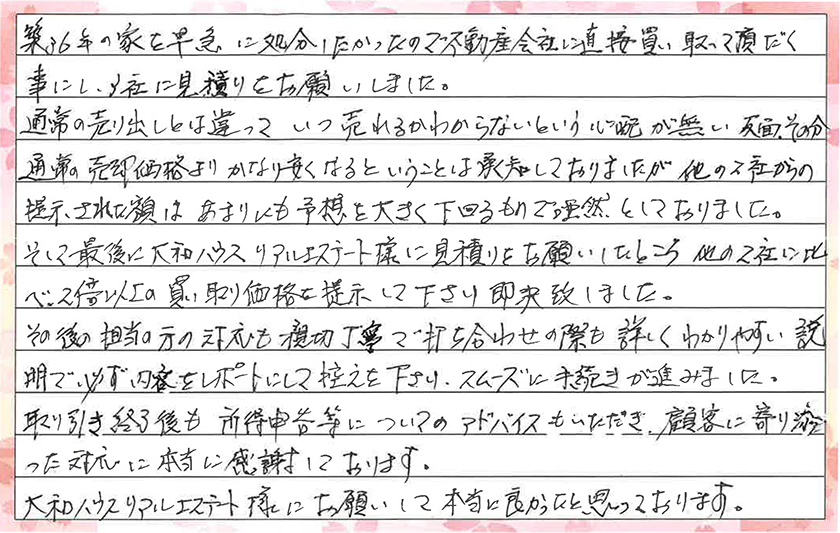 築36年の家を早急に処分したかったので不動産会社に直接買い取って頂だく
事にし、3社に見積りをお願いしました。
通常の売り出しとは違って いつ売れるかわからないという心配が無い反面、その分
通常の売却価格よりかなり安くなるということは承知しておりましたが 他の2社からの
提示された額は あまりにも予想を大きく下回るもので呆然としておりました。
そして最後に大和ハウスリアルエステート様に見積りをお願いしたところ 他の2社に比
べ2倍以上の買い取り価格を提示して下さり即決致しました。
その後の担当の方の対応も親切丁寧で打ち合わせの際も詳しくわかりやすい説
明で必ず内容をレポートにして控えを下さり、スムーズに手続きが進みました。
取り引き終了後も所得申告等についてのアドバイスもいただき、顧客に寄り添
った対応に本当に感謝しております。
大和ハウスリアルエステート様にお願いして本当に良かったと思っております。